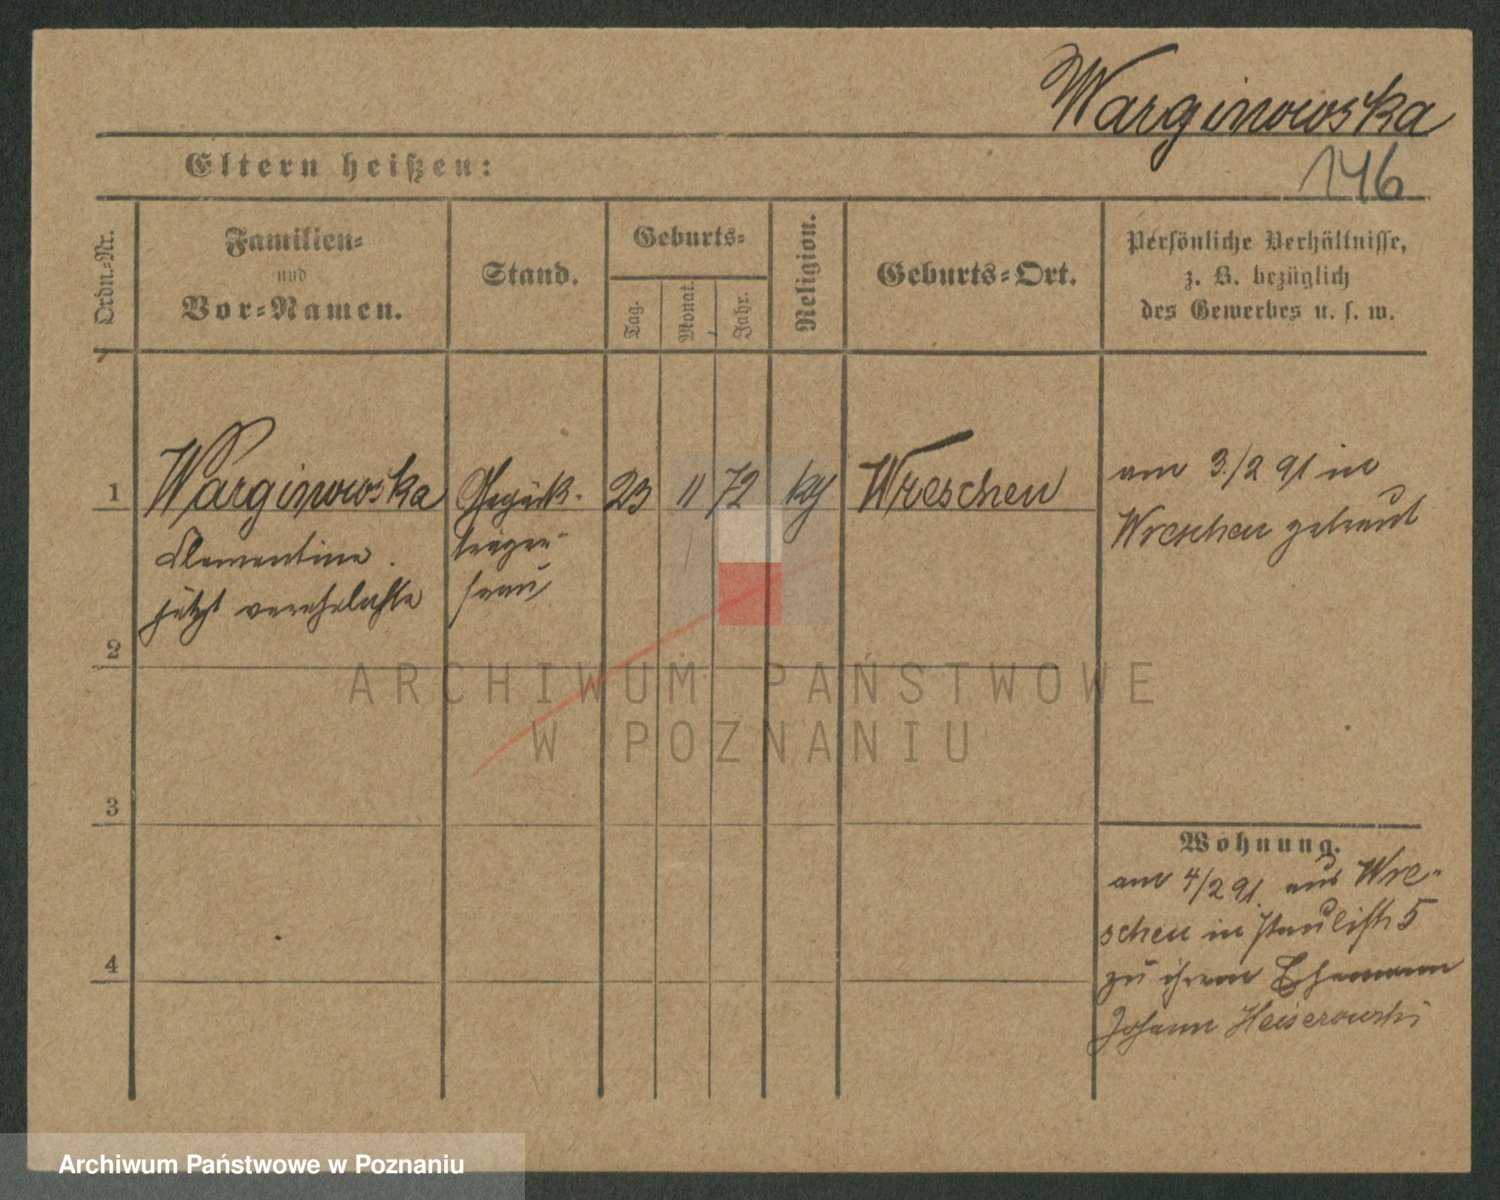 Warginowska
146
Eltern heißen:
Ordn.-Nr.
Familien-
und
Vor-Namen.
Stand.
Geburts-
Tag.
Monat.
Jahr.
Religion.
Geburts-Ort.
Persönliche Verhältnisse,
z. B. bezüglich
des Gewerbes u. s. w.
1
Warginowska
Clementine.
jetzt verehelichte
Gepäck-
träger-
frau
23 11 72
Wreschen
am 3/2 91 in
Wreschen getraut
2
ARCHIWUM PAŃSTWOWE
W POZNANIU
3
Wohnung.
am 4/2 91. aus Wre-
schen in 5
4
zu ihrem Ehemann
Johann
Archiwum Państwowe w Poznaniu